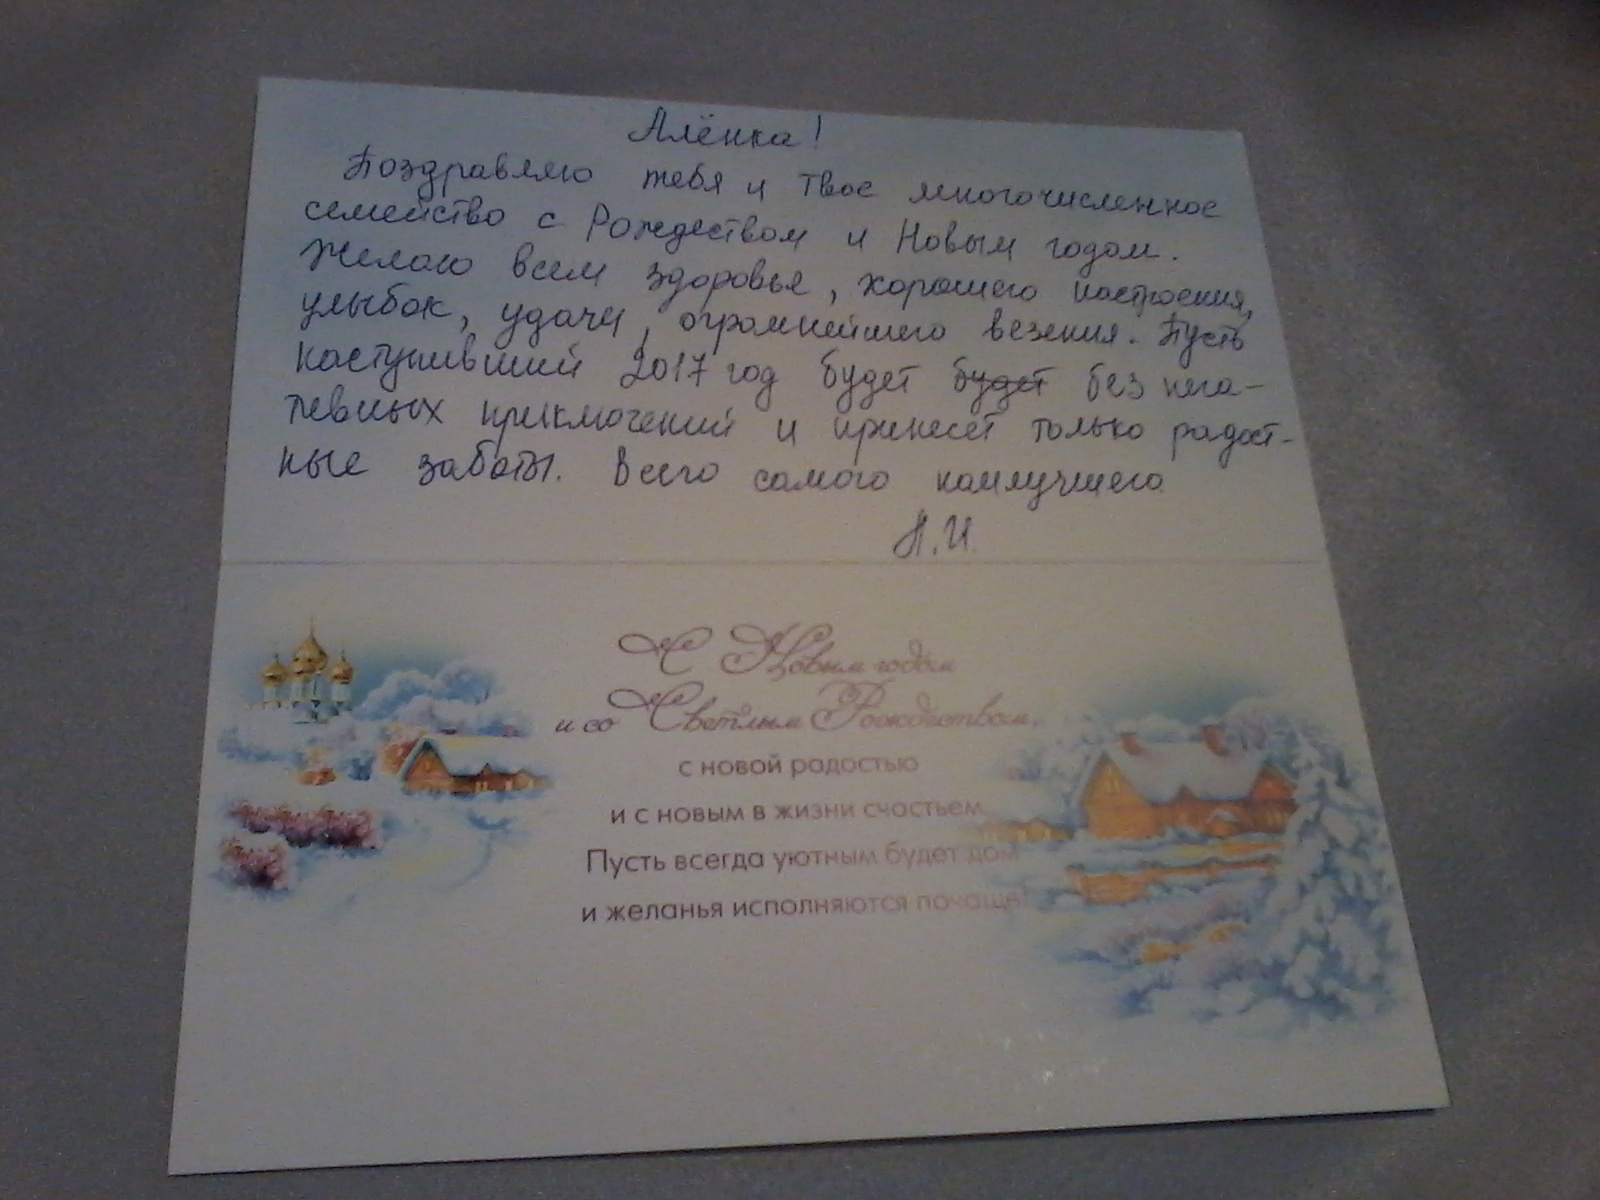 Алёнка!
Поздравляю тебя и твое многочисленное
семейство с Рождеством и Новым годом.
Желаю всем здоровья, хорошего настроения,
улыбок, удачи, огромнейшего везения. Пусть
наступивший 2017 год будет будет без нега-
тевных приключений и принесет только радост-
ные заботы. Всего самого наилучшего
Н.И.
С Новым годом
и со Светлым Рождеством,
с новой радостью
и с новым в жизни счастьем
Пусть всегда уютным будет дом
и желанья исполняются почаще!